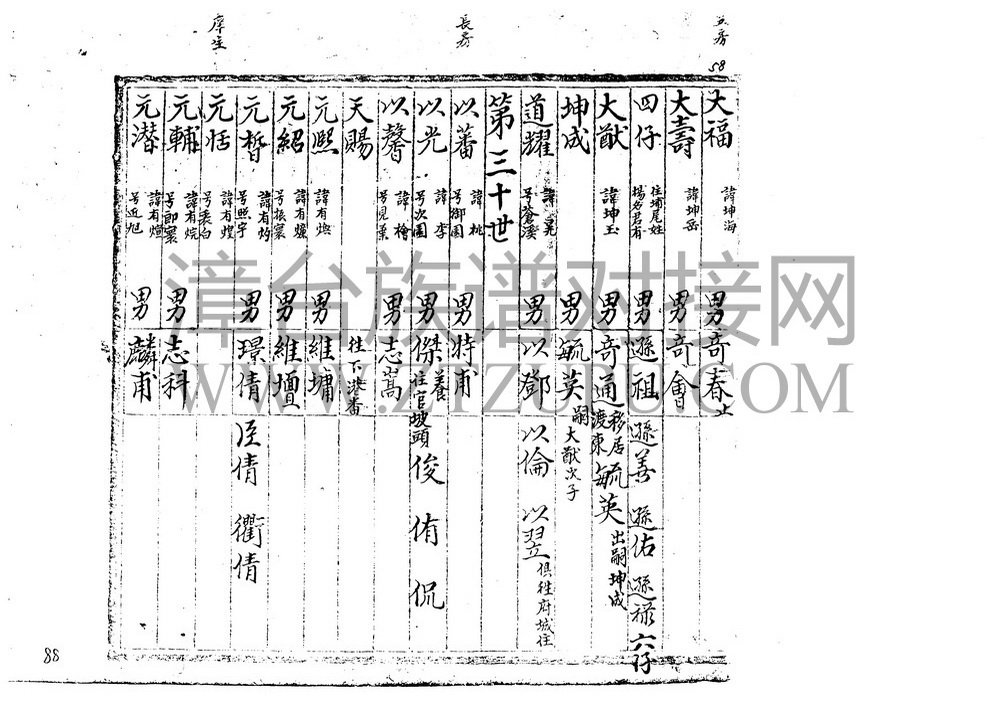 五房
長房
庠生
58
大福 諱坤海 男 奇春 止
大壽 諱坤岳 男 奇會
四仔 住埔尾姓楊名君有 男 遜祖 遜善 遜佑 遜祿 六仔
大猷 諱坤玉 男 奇通 移居渡東 毓英 出嗣坤成
坤成 男 毓英 嗣大猷次子
道耀 諱晃 号蒼溪 男 以鄧 以倫 以翌 俱徃府城住
第三十世
以蕃 諱桃 号御園 男 特甫 養
以光 諱李 号次園 男 傑 住官坡頭 俊 侑 侃
以馨 諱檜 号見葉 男 志嵩
天賜 往下港番
元熙 諱有煥 男 維墉
元紹 諱有爌 号振寰 男 維壇
元晳 諱有灼 号熙宇 男 璟倩 匡倩 衢倩
元恬 諱有煌 号素白
元輔 諱有烷 号郎寰 男 志科
元潛 諱有煊 号近旭 男 麟甫
88
漳台族谱对接网
WWW.ZTZUPU.COM